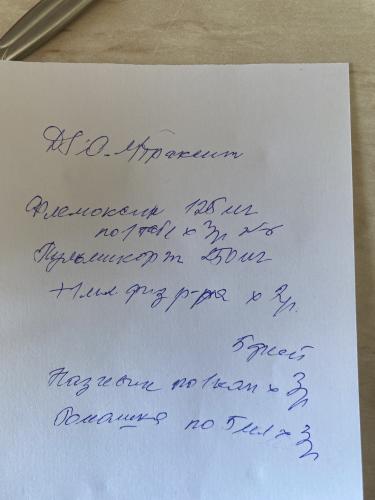 DS: О. трахеит
Флемоксин 125 мг
по 1 табл х 3р №6
Пульмикорт 250 мг
+ 1 мл физ р-ра х 2р.
5 дней
Називин по 1 кап х 3р
Ромашка по 5 мл х 3р